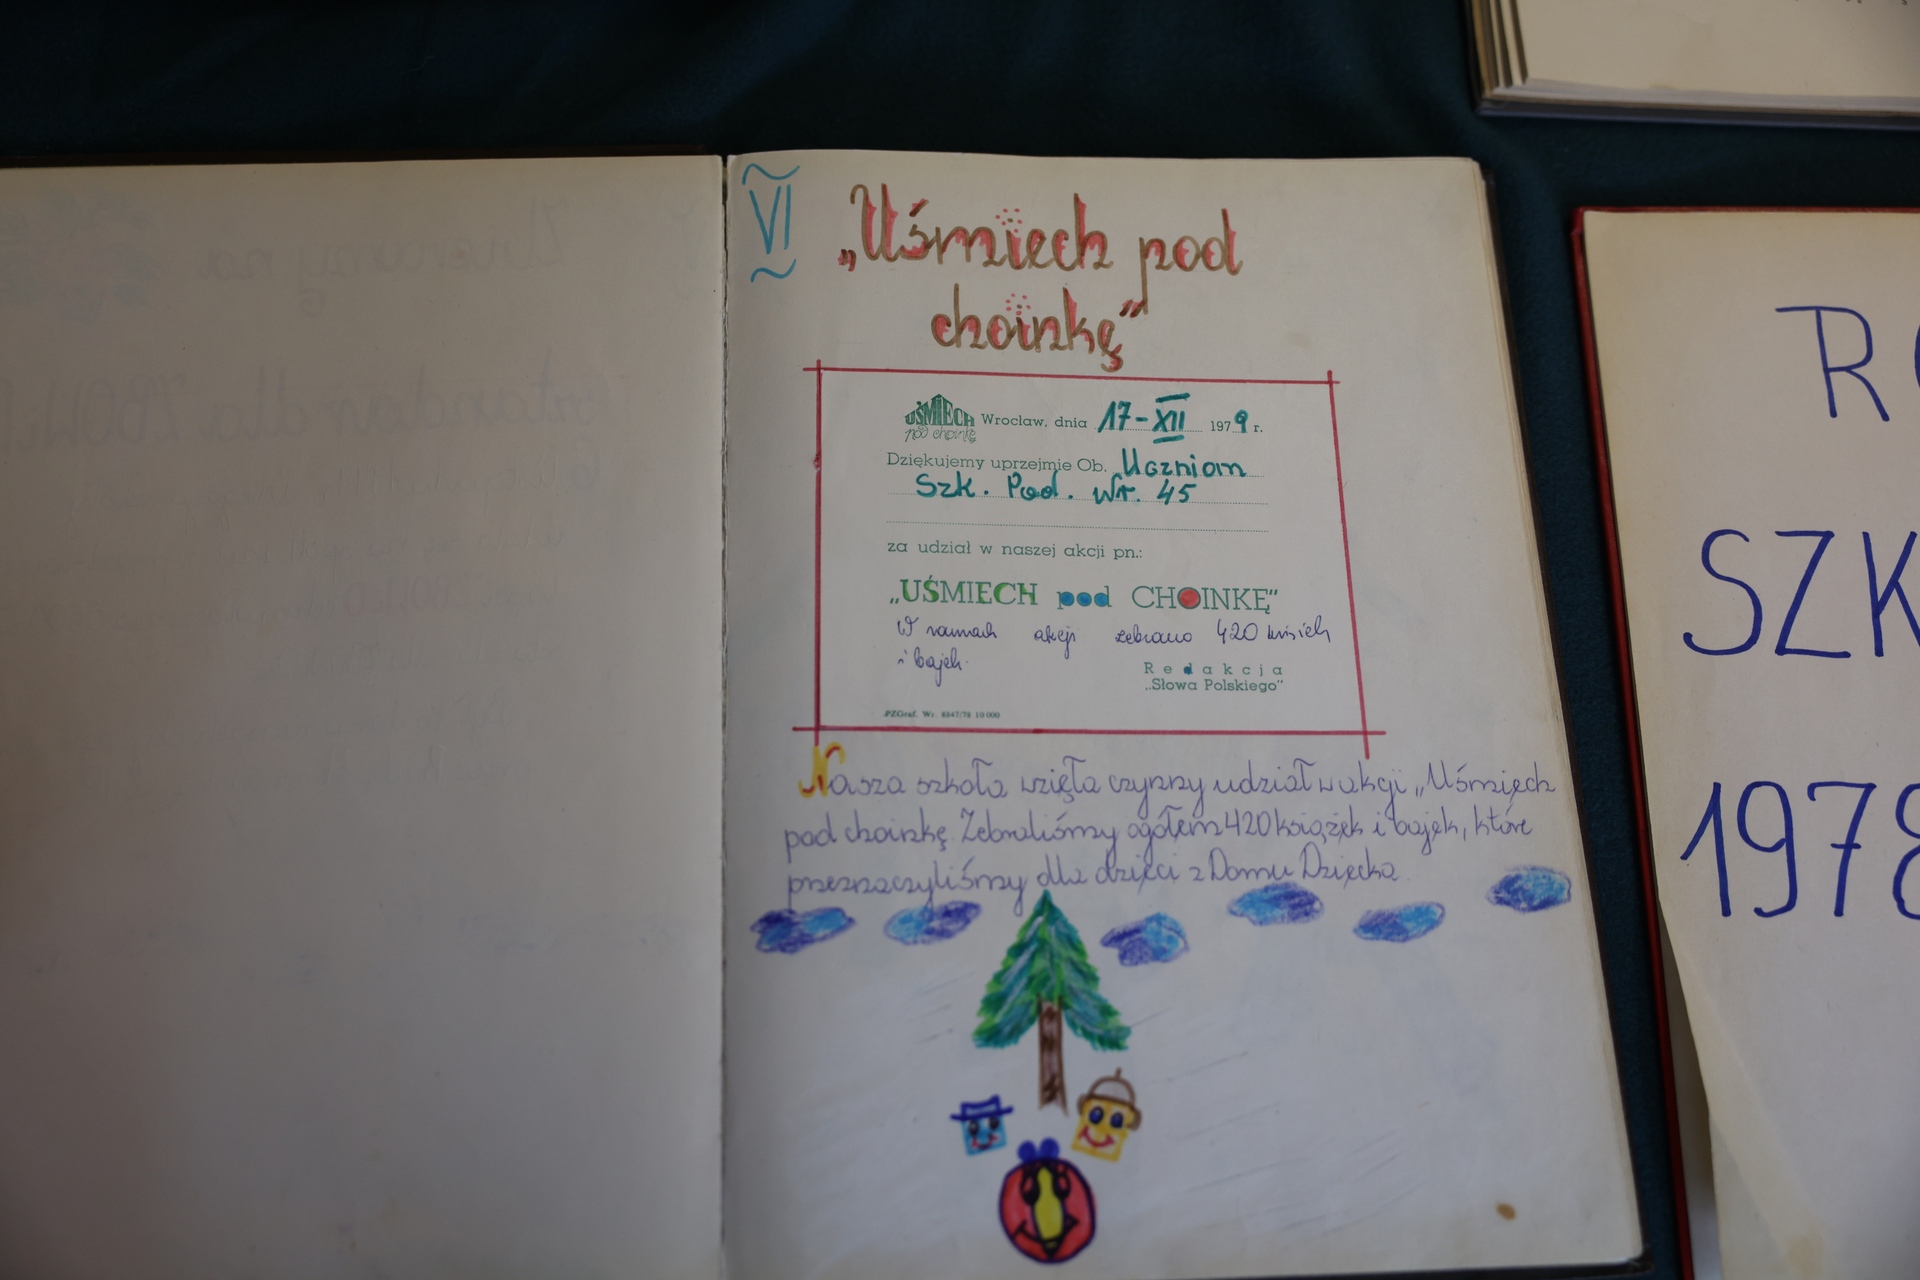 VI
„Uśmiech pod
choinkę”
UŚMIECH
pod choinkę
Wrocław, dnia 17-XII 1979 r.
Dziękujemy uprzejmie Ob. Uczniom
Szk. Pod. Nr. 45
za udział w naszej akcji pn.:
„UŚMIECH pod CHOINKĘ”
W ramach akcji zebrano 420 książek
i bajek.
Redakcja
„Słowa Polskiego”
PZGraf. Wr. 8847/78 10 000
Nasza szkoła wzięła czynny udział w akcji „Uśmiech
pod choinkę. Zebraliśmy ogółem 420 książek i bajek, które
przeznaczyliśmy dla dzieci z Domu Dziecka.
R
SZK
1978